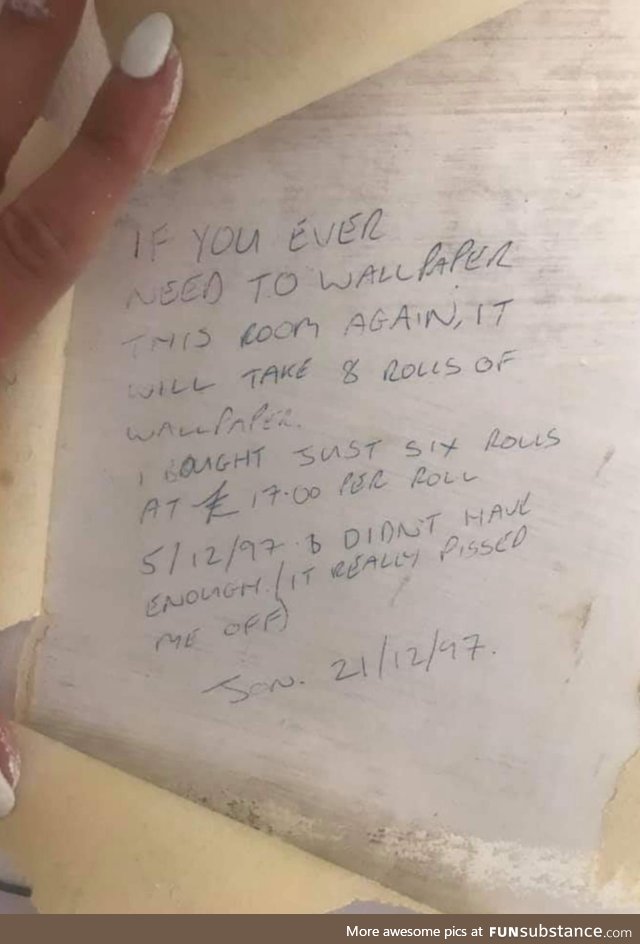 IF YOU EVER
NEED TO WALLPAPER
THIS ROOM AGAIN, IT
WILL TAKE 8 ROLLS OF
WALLPAPER.
I BOUGHT JUST SIX ROLLS
AT £17.00 PER ROLL
5/12/97 & DIDNT HAVE
ENOUGH. (IT REALLY PISSED
ME OFF)
Jon. 21/12/97.
More awesome pics at FUNsubstance.com